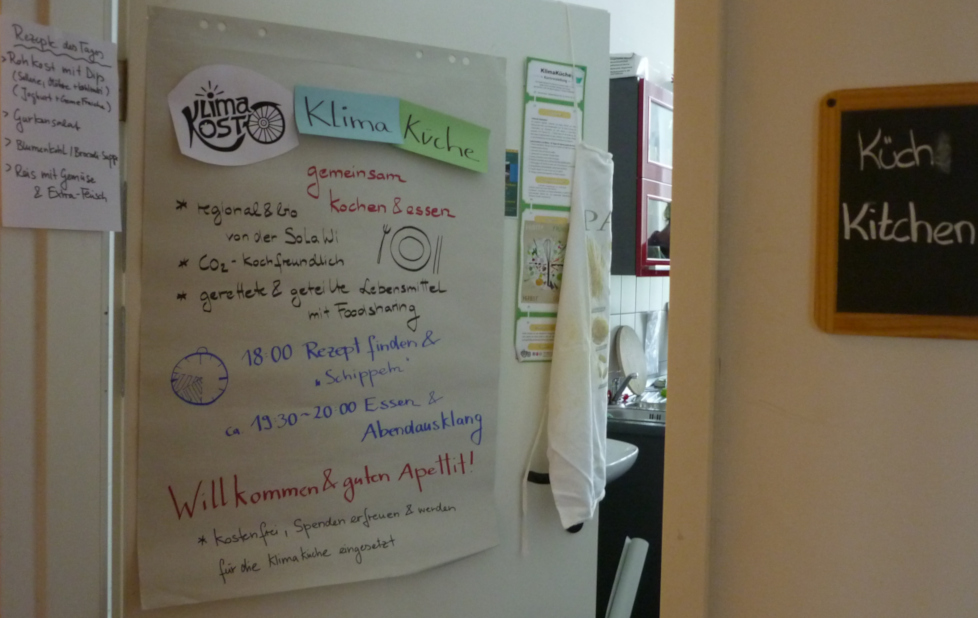 Rezepte des Tages
> Rohkost mit Dip
> Gurkensalat
> Blumenkohl / 
> Reis mit Gemüse
&
Klima
Kost
Klima Küche
gemeinsam
kochen & essen
* regional & bio
von der SoLaWi
* CO₂-kochfreundlich
* gerettete & geteilte Lebensmittel
mit Foodsharing
18:00 Rezept finden &
„Schippeln"
ca 19 30 - 20 00 Essen &
Abendausklang
Willkommen & guten Apettit!
* kostenfrei, Spenden erfreuen & werden
für die Klimaküche eingesetzt
KlimaKüche
PA
Küch
Kitchen